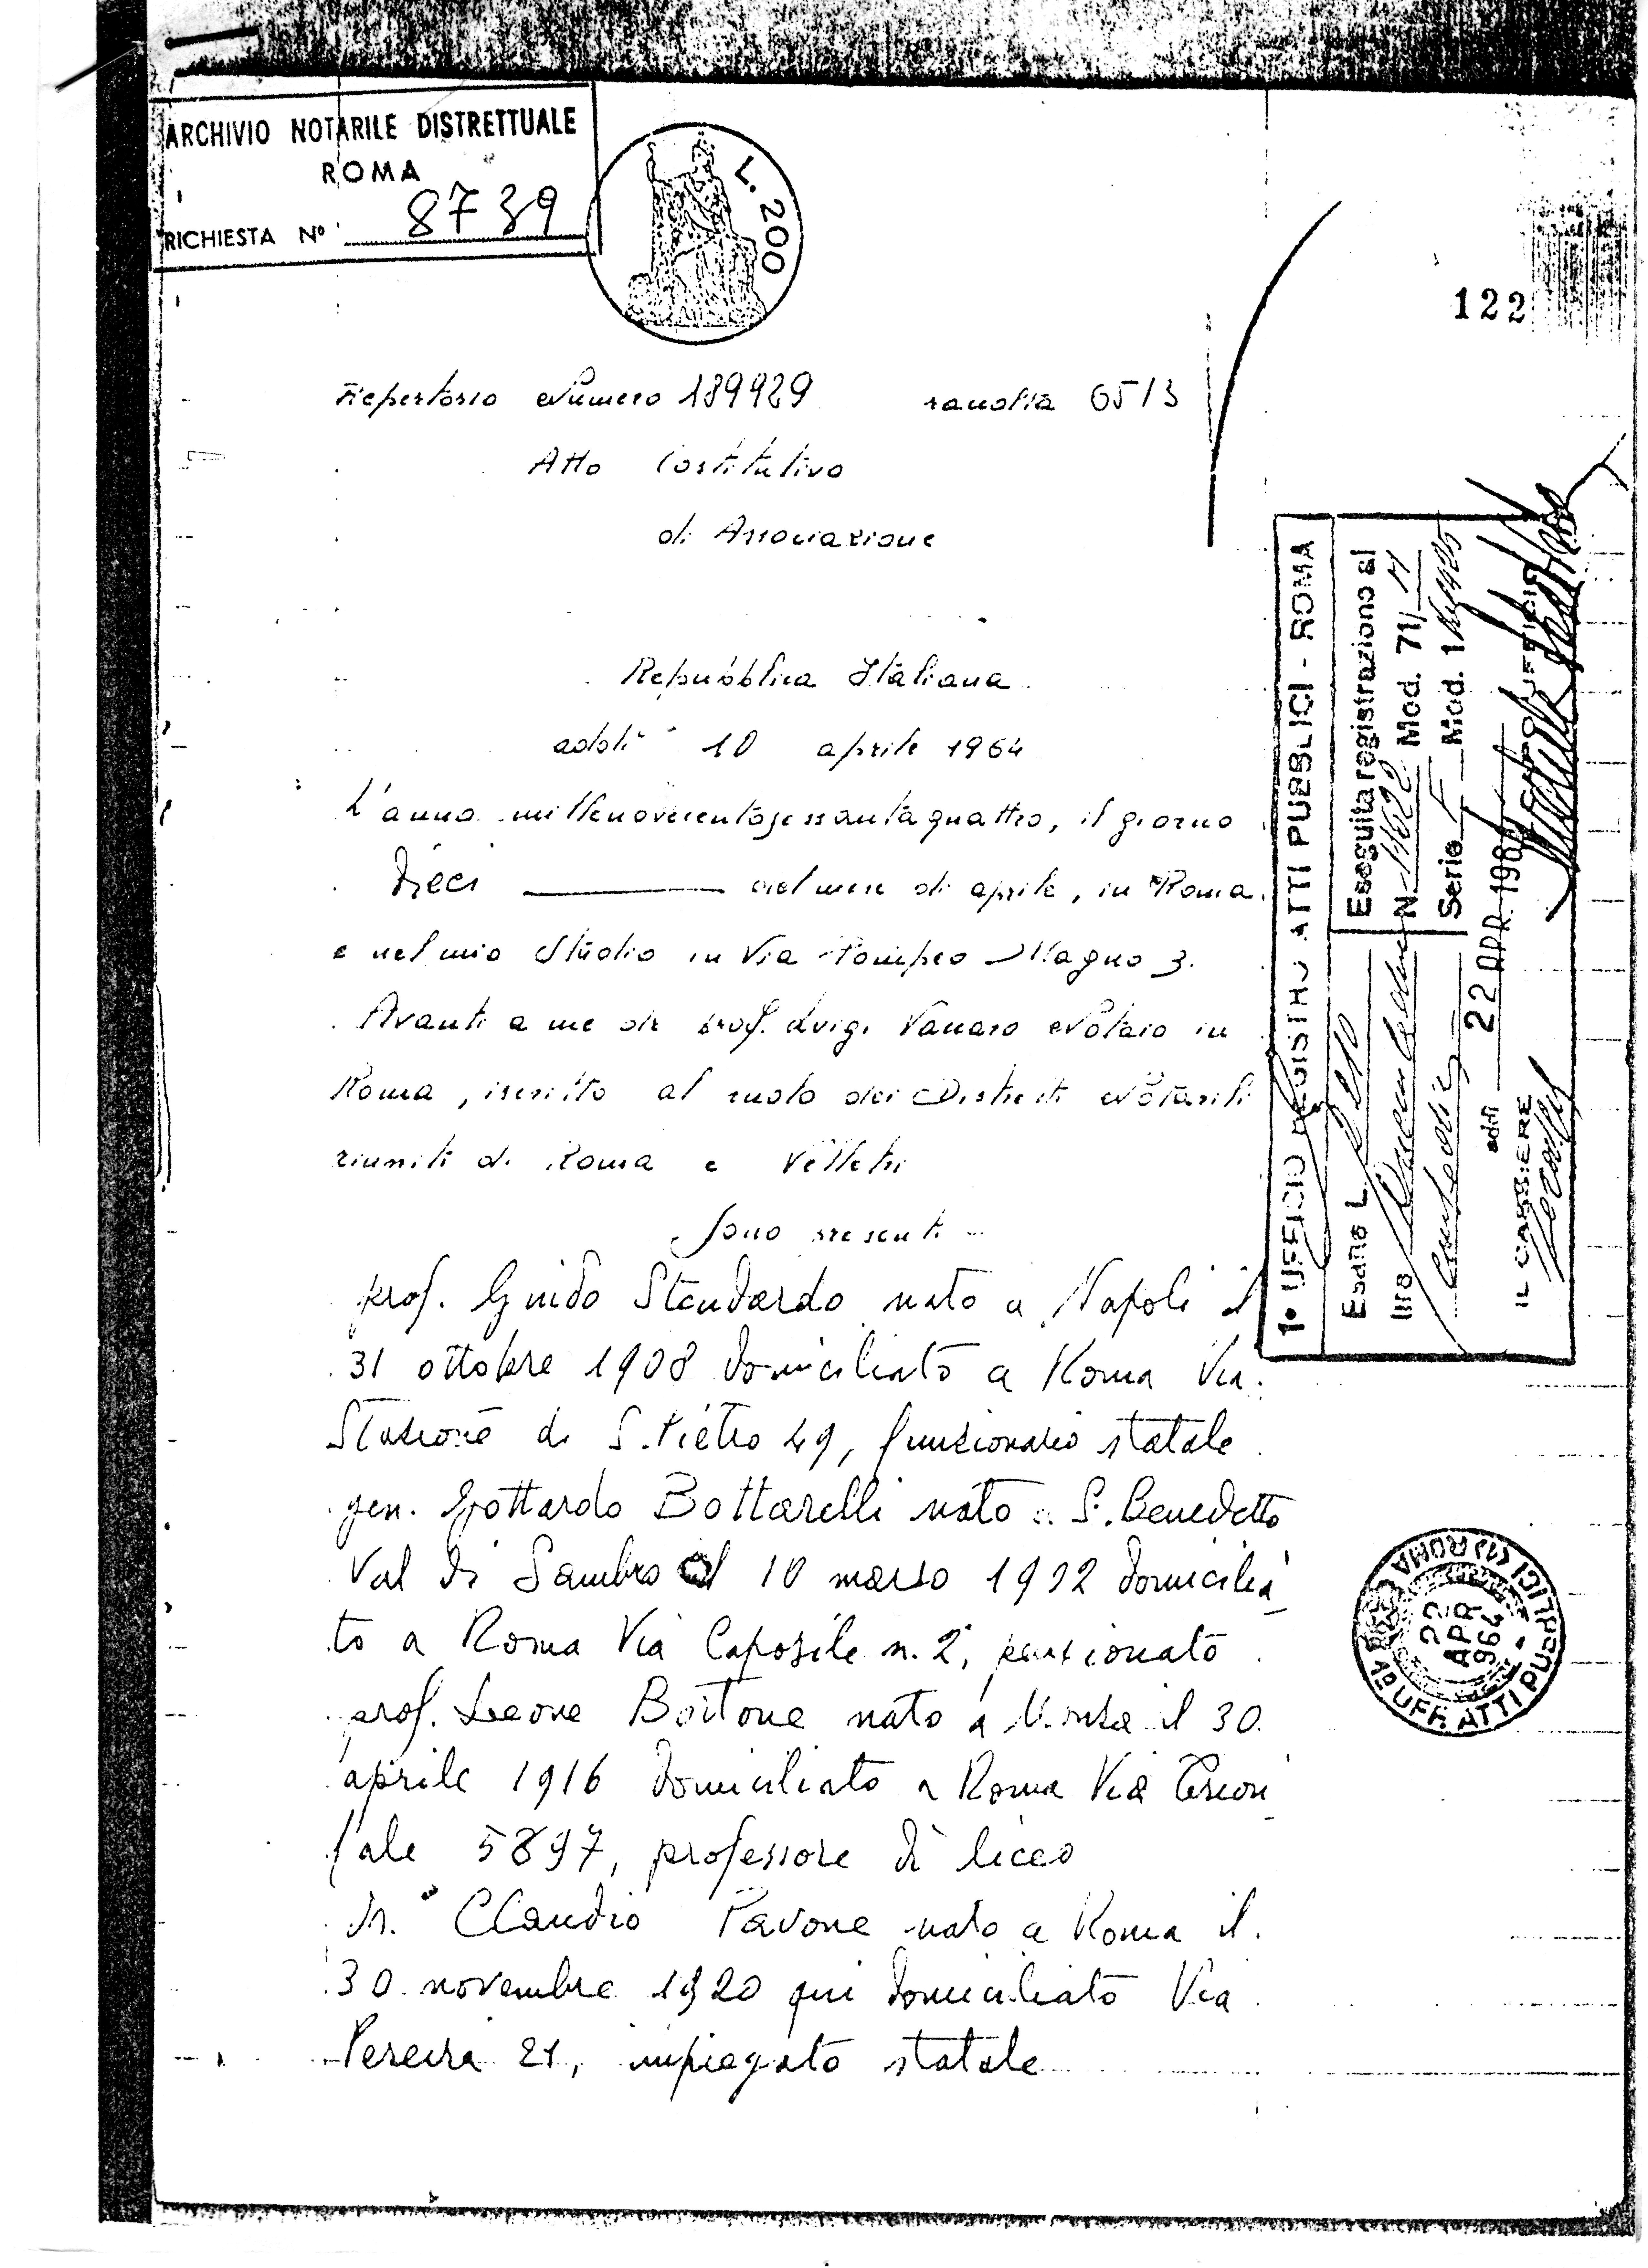 ARCHIVIO NOTARILE DISTRETTUALE
ROMA
RICHIESTA N° 8739
L. 200
122
Repertorio Numero 189929 raccolta 6513
Atto Costitutivo
di Associazione
Repubblica Italiana
addì 10 aprile 1964
L'anno millenovecentosessantaquattro, il giorno
Dieci del mese di aprile, in Roma
e nel mio Studio in Via Pompeo Magno 3.
Avanti a me dr prof. Luigi Vanaro Notaio in
Roma, iscritto al ruolo dei Distretti Notarili
riuniti di Roma e Velletri
Sono presenti
prof. Guido Standardo nato a Napoli il
31 ottobre 1908 domiciliato a Roma Via
Stazione di S. Pietro 49, funzionario statale
gen. Gottardo Bottarelli nato a S. Benedetto
Val di Sambro il 10 marzo 1922 domicilia
to a Roma Via Caposile n. 2, pensionato
prof. Leone Bortone nato a Monza il 30
aprile 1916 domiciliato a Roma Via Trion
fale 5897, professore di liceo
dr. Claudio Pavone nato a Roma il
30 novembre 1920 qui domiciliato Via
Pereira 21, impiegato statale
1° UFFICIO REGISTRO ATTI PUBBLICI - ROMA
Eseguita registrazione al
N. 11622 Mod. 71/M
Serie F Mod. 1
Esatte L.
lire
addì 22 APR. 1964
IL CASSIERE
1° UFF. ATTI PUBBLICI (1) ROMA
22
APR
964